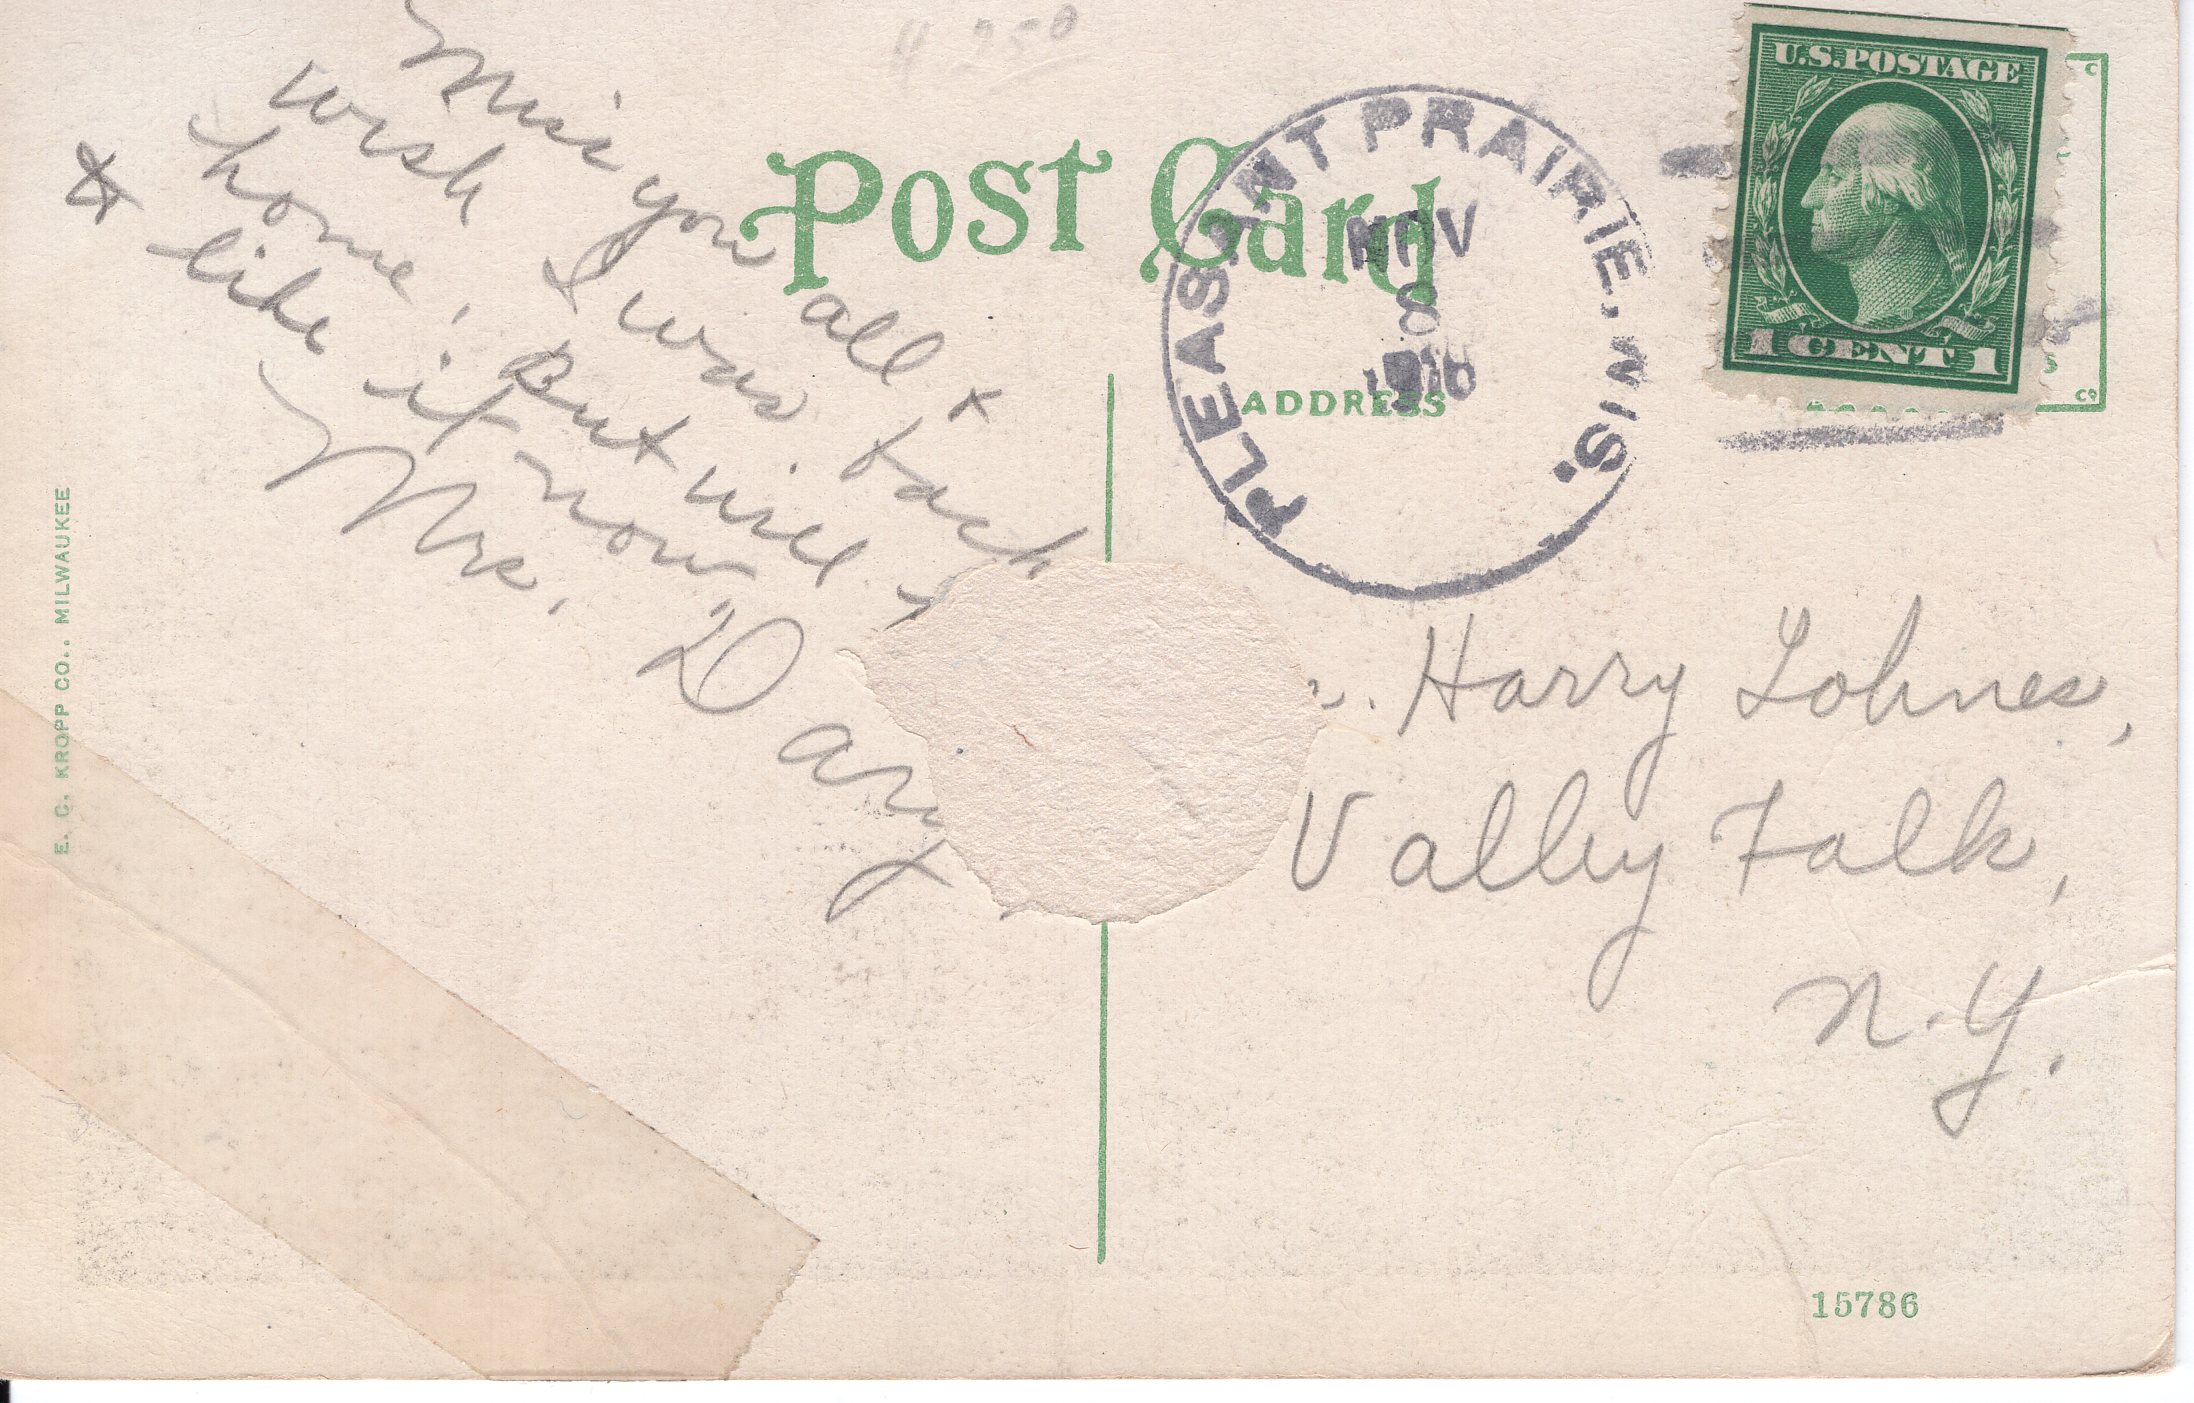 Miss you all &
wish I was back
home, But will
& like it now.
Mrs. Dary
Post Card
ADDRESS
PLEASANT PRAIRIE, WIS.
NOV
8
U.S. POSTAGE
1 CENT 1
Harry Lohnes,
Valley Falls,
N.Y.
E. C. KROPP CO., MILWAUKEE
15786